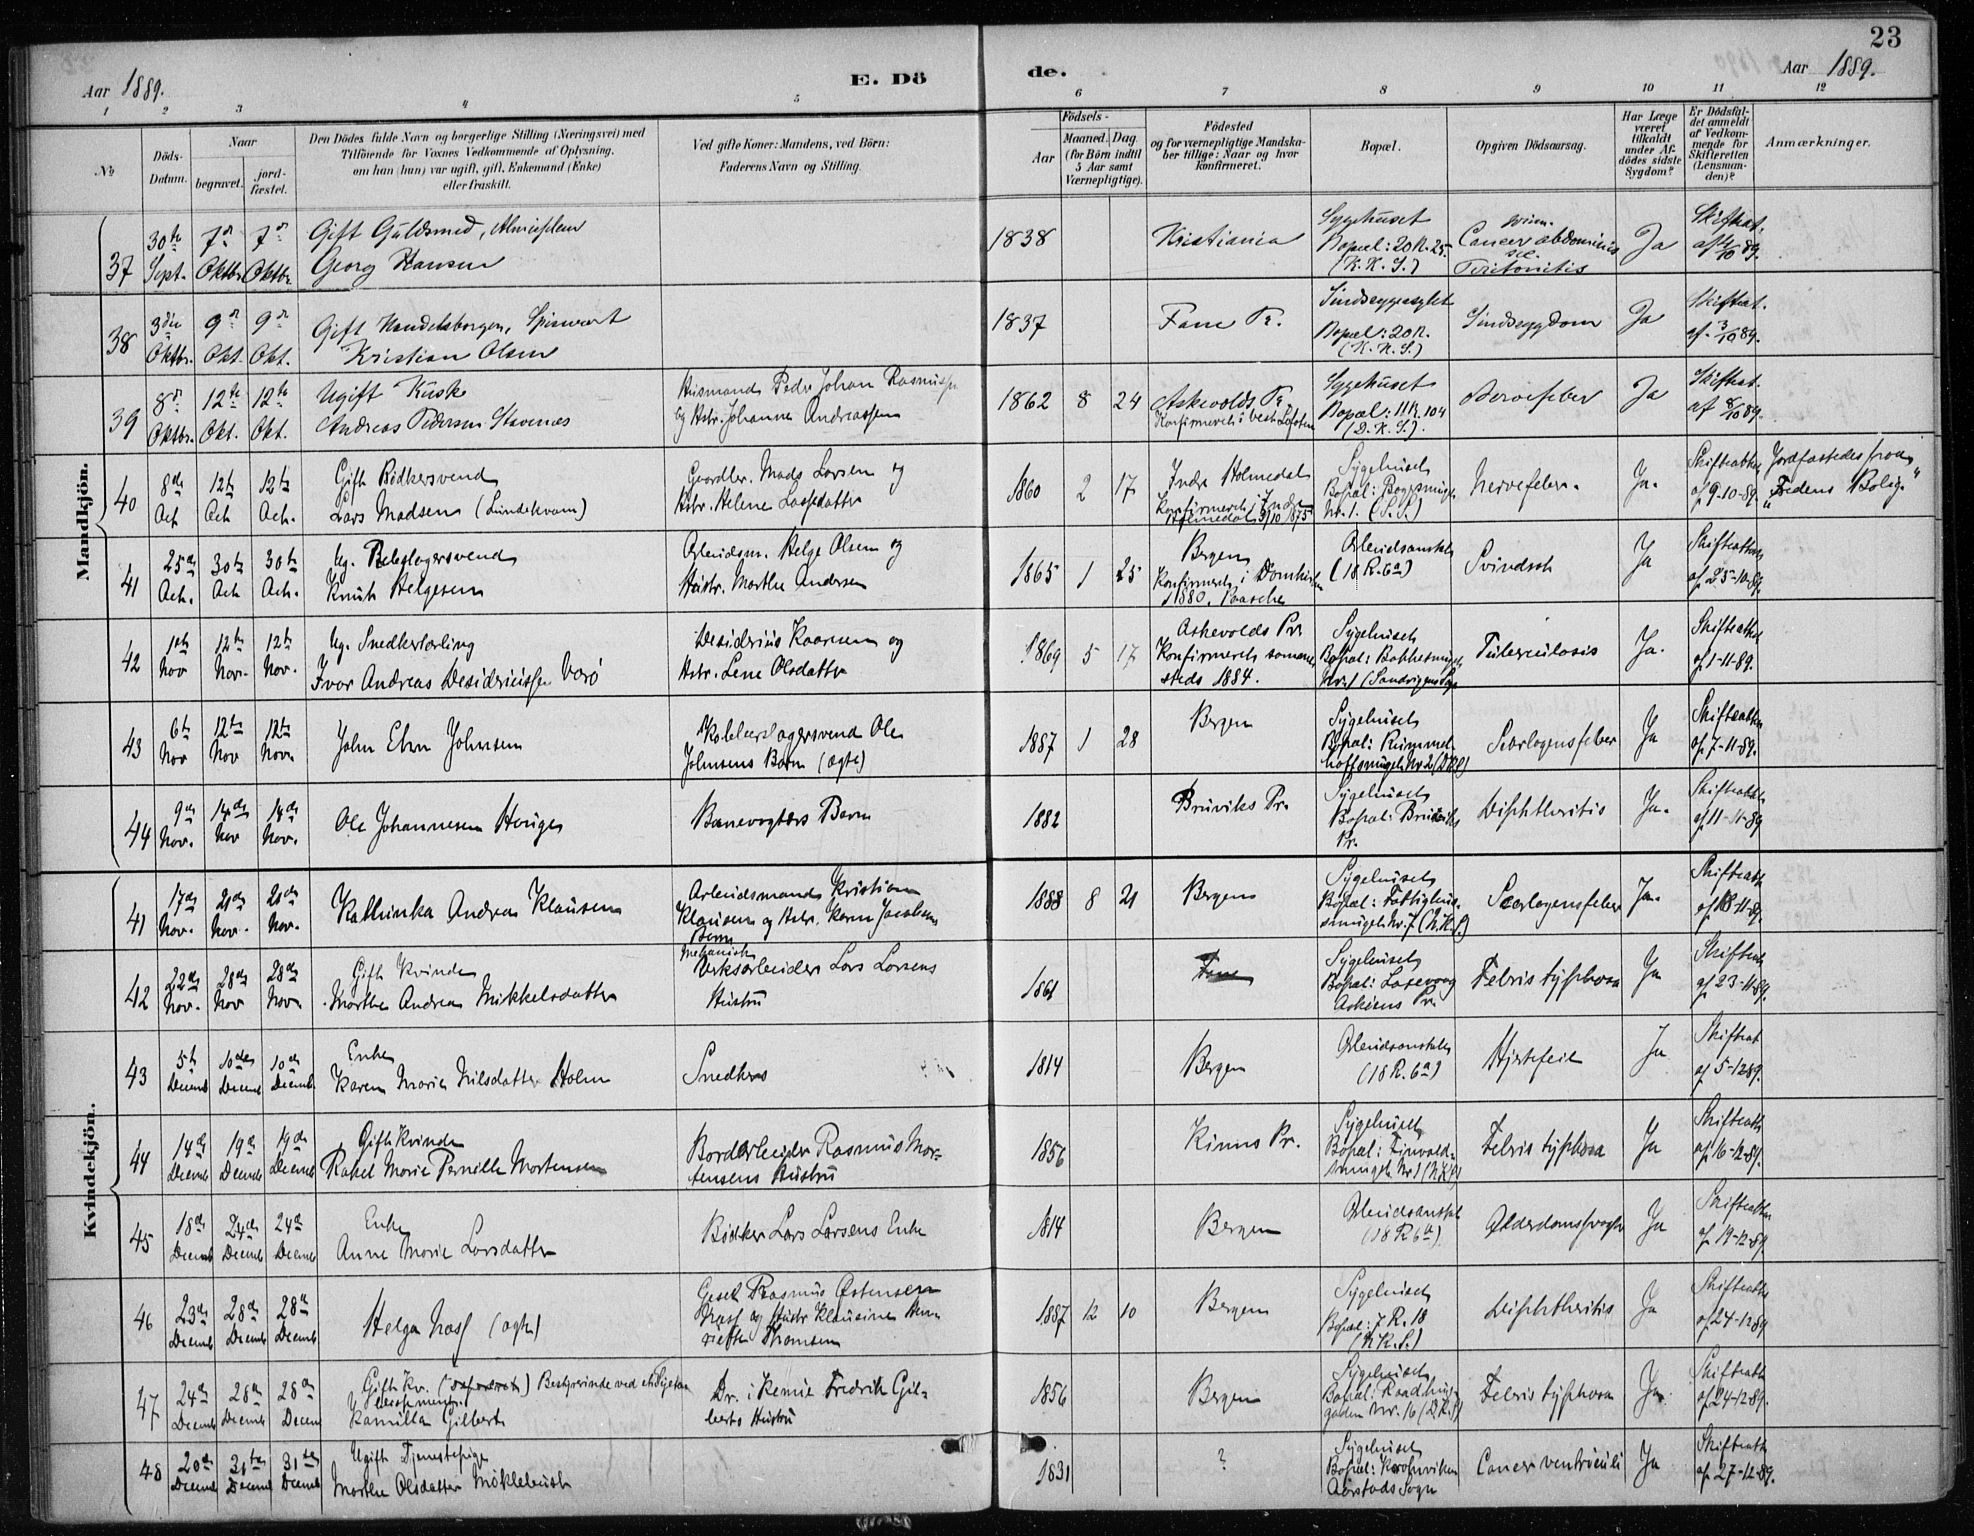 23
Aar 1889.
E. Dö
de.
Aar 1889.
1 2 3 4 5 6 7 8 9 10 11 12
No
Döds-Datum.
Naar
begravet.
jord-fæstet.
Den Dödes fulde Navn og borgerlige Stilling (Næringsvei) med
Tilföiende for Voxnes Vedkommende af Oplysning,
om han (hun) var ugift, gift, Enkemand (Enke)
eller fraskilt.
Ved gifte Koner: Mandens, ved Börn:
Faderens Navn og Stilling.
Födsels-
Aar
Maaned. Dag
(for Börn indtil
5 Aar samt
Værnepligtige).
Födested
og for værnepligtige Mandska-
ber tillige: Naar og hvor
konfirmeret.
Bopæl.
Opgiven Dödsaarsag.
Har Læge
været
tilkaldt
under Af-
dödes sidste
Sygdom?
Er Dödsfal-
det anmeldt
af Vedkom-
mende for
Skifteretten
(Lensman-
den)?
Anmærkninger.
Mandkjön.
37 30te Sept. 7de Oktbr. 7de Oktbr.
Gift Guldsmed,
Georg Hansen
1838 Kristiania
Sygehuset
Bopæl: 20 R. 25.
(K. K. S.)
Cancer abdominis
Peritonitis
Ja
Skifteat.
af 4/10 89.
38 3die Oktbr. 9de Okt. 9de Okt.
Gift Handelsborger, Spisevert
Kristian Olsen
1837 Fane Pr.
Sindssygeasylet
Bopæl: 20 R.
(K. K. S.)
Sindssygdom
Ja
Skifteat.
af 3/10 89.
39 8de Oktbr. 12te Okt. 12te Okt.
Ugift Kusk
Andreas Pedersen Stavenes
Husmand Peder Johan Rasmuss.
og Hstr. Johanne Andreassen
1862 8 24
Askevolds Pr.
Konfirmeret i Vest Lofoten
Sygehuset
Bopæl: 11 R. 104
(D. K. S.).
Nervefeber
Ja
Skifteat.
af 8/10 89.
40 8de Oct 12te Oct 12te Oct.
Gift Bödkersvend
Lars Madsen (Lundekvam)
Gaardbr. Mads Larsen og
Hstr. Helene Larsdatter
1860 2 17
Indre Holmedal
Konfirmeret i Indre
Holmedal 3/10 1875
Sygehuset
Nr. 1. (S. S.)
Nervefeber.
Ja.
Skifteattest
af 9-10-89.
Jordfæstedes fra
"Fredens Bolig"
41 25de Oct. 30te Oct 30te Oct.
Ug. Rebslagersvend
Knut Helgesen
Arbeidsm. Helge Olsen og
Hustr. Marthe Andersen
1865 1 25
Bergen
Konfirmeret i Domkirken
1880. Paasche
Arbeidsanstalt
(18 R. 6a)
Svindsot
Ja
Skifteattest
af 25-10-89.
42 1ste Nov 12te Nov. 12te Nov.
Ug. Snedkerlærling
Ivar Andreas Desideriussen Værö
Desiderius Kaaresen og
Hstr. Lene Olsdatter
1869 5 17
Askevolds Pr.
Konfirmeret samme-
steds 1884.
Sygehuset
Bopæl: Bakkesmuget
Nr. 1 (Sandvigens Sogn
Tuberculosis
Ja.
Skifteattest
af 1-11-89.
43 6te Nov 12te Nov 12te Nov
John Johnsen
Kobberslagersvend Ole
Johnsens Barn (ægte)
1887 1 28
Bergen
Sygehuset
Bopæl: Rummel-
hoffsmuget Nr 2 (DKS)
Scarlagensfeber
Ja
Skifteattest
af 7-11-89.
44 9de Nov. 14de Nov 14de Nov.
Ole Johannesen Hauge
Banevogters Barn
1882
Bruviks Pr.
Sygehuset
Bopæl: Bruviks
Pr.
Diphtheritis
Ja.
Skifteattest
af 11-11-89
Kvindekjön.
41 17de Nov. 21de Nov. 21de Nov.
Kathinka Andrea Klausen
Arbeidsmand Kristian
Klausen og Hstr. Karen Jacobsens
Barn
1888 8 21
Bergen
Sygehuset
Bopæl: Fattighus-
smuget Nr. 7 (N. K. S.)
Scarlagensfeber
Ja.
Skifteatt
af 18-11-89.
42 22de Nov. 28de Nov 28de Nov
Gift Kvinde
Marthe Andrea Mikkelsdatter
Mekanisk
Verksarbeider Lars Larsens
Hustru
1861
Fane
Sygehuset
Bopæl:
Askøens Pr.
Febris typhosa
Ja
Skifteatt
af 23-11-89.
43 5te Decemb 10de Decemb 10de Decemb
Enke
Karen Marie Nilsdatter Holm
Snedkers
1814
Bergen
Arbeidsanstalt
(18 R. 6a)
Hjertefeil
Ja
Skifteat
af 5-12 89.
44 14de Decemb 19de Decemb 19de Decemb
Gift Kvinde
Rakel Marie Pernille Mortensen
Bordarbeider Rasmus Mor-
tensens Hustru
1856
Kinns Pr.
Sygehuset
Bopæl:
smuget Nr 1 (N.K.S)
Febris typhosa
Ja
Skifteatt
af 16-12-89.
45 18de Decemb 24de Decemb 24de Decemb
Enke
Anne Marie Larsdatter
Bödker Lars Larsens Enke
1814
Bergen
Arbeidsanstalt
(18 R 6a)
Alderdomssvaghed
Ja
Skifteattest
af 19-12-89
46 23de Decemb 28de Decemb 28de Decemb
Helga Nass (ægte)
Gesel Rasmus Østensen
Nass og Hustr Klausine Hen-
riette Thomsen
1887 12 10
Bergen
Sygehuset
Bopæl: 7 R. 18
(N K. S.)
Diphtheritis
Ja
Skifteatt
af 24-12 89
47 24de Decemb 28de Decemb 28de Decem
Gift Kv. (separeret) Bestyrerinde ved et
Kamilla Gilbert
Dr. i Kemie Fredrik Gil-
berts Hustru
1856
Bergen
Sygehuset
Bopæl: Raadhus-
gaden Nr. 16 (D.K.S)
Febris typhosa
Ja.
Skifteatt
af 24-12-89.
48 20de Decemb 31te Decemb 31te Decemb
Ugift Tjenestepige
Marthe Olsdatter Möklebust
1831
?
Sygehuset
Bopæl: Kronviken
Aarstads Sogn
Cancer ventriculi
Ja
Skifteatt
af 27-12-89.